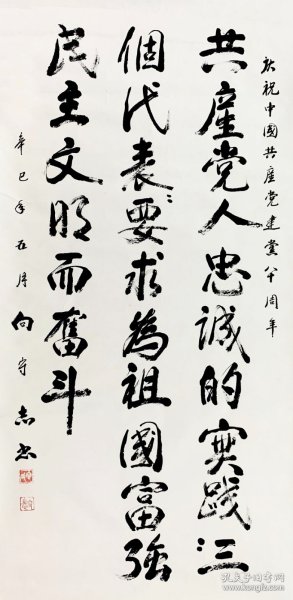 庆祝中國共產党建黨八十周年
共產党人忠誠的实践三
個代表要求為祖國富強
民主文明而奮斗
辛巳年五月向守志书
孔夫子旧书网